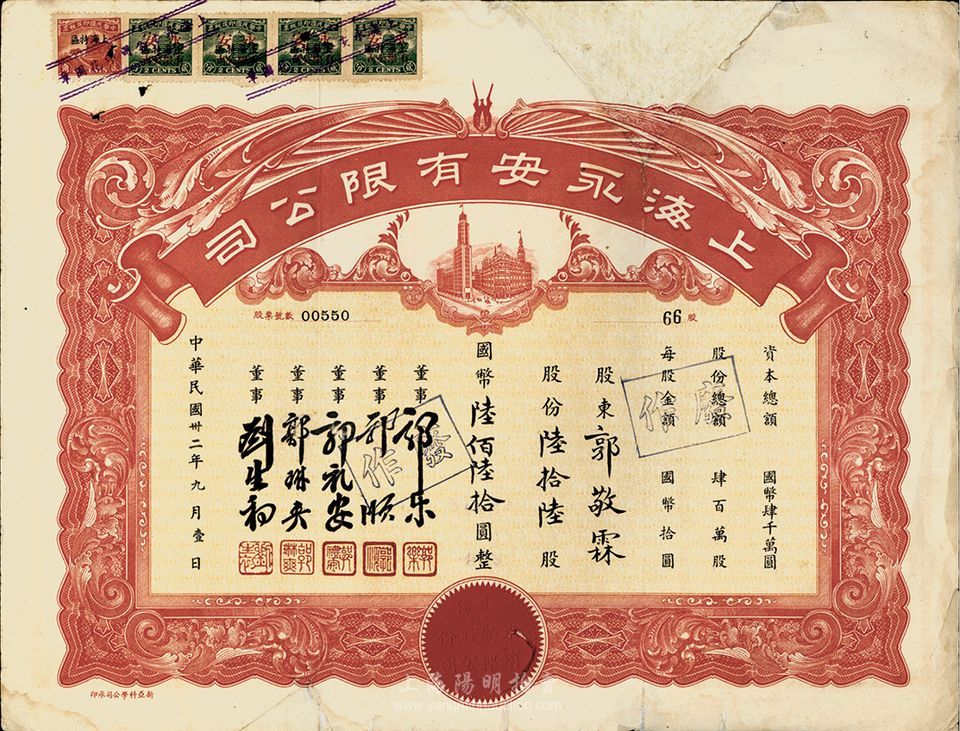 上海特區
2 CENTS
2 CENTS
2 CENTS
2 CENTS
上海永安有限公司
股票號數 00550
66 股
資本總額 國幣肆千萬圓
股份總額 肆百萬股
每股金額 國幣拾圓
股東 郭敬霖
股份 陸拾陸 股
國幣 陸佰陸拾圓整
董事 郭樂
董事 郭順
董事
董事 郭琳爽
董事 劉生初
中華民國卅二年九月壹日
作廢
作廢
新亞科學公司承印
上海陽明拍賣